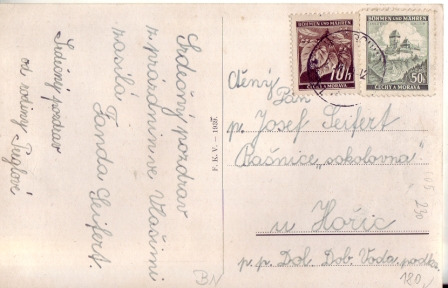 Srdečný pozdrav
z prázdnin ve Vlašimi
zasílá
Fanda Seifert.
Srdečný pozdrav
od rodiny
F. K. V. – 1939.
BÖHMEN UND MÄHREN
10h
ČECHY A MORAVA
BÖHMEN UND MÄHREN
50h
ČECHY A MORAVA
Ctěný
Pán
p. Josef Seifert
Bašnice „sokolovna“
u Hořic
p. p. Dol. Dob. Voda, podkr.
120,-